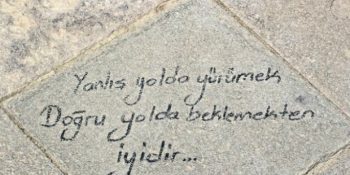 Yanlış yolda yürümek
Doğru yolda beklemekten
iyidir...